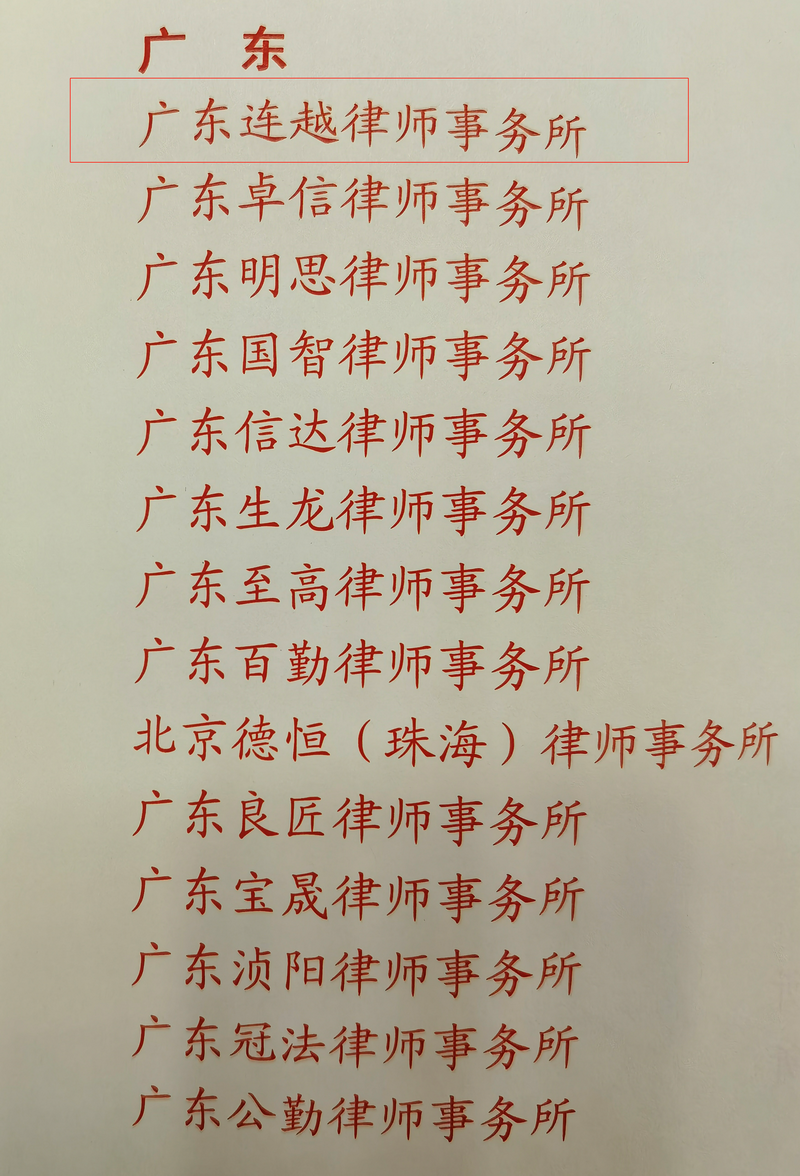 广 东
广东连越律师事务所
广东卓信律师事务所
广东明思律师事务所
广东国智律师事务所
广东信达律师事务所
广东生龙律师事务所
广东至高律师事务所
广东百勤律师事务所
北京德恒（珠海）律师事务所
广东良匠律师事务所
广东宝晟律师事务所
广东浈阳律师事务所
广东冠法律师事务所
广东公勤律师事务所